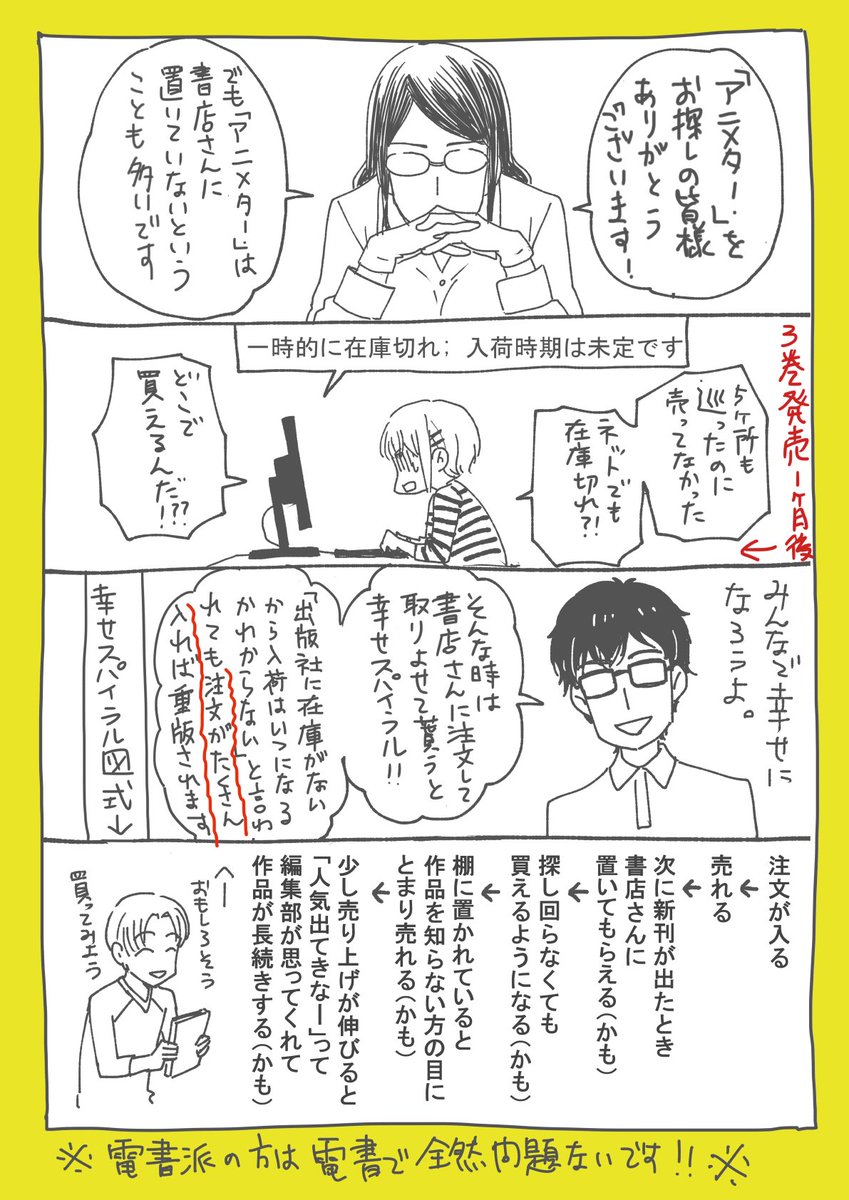 「アニメタ！」を
お探しの皆様
ありがとう
ございます！
でも「アニメタ！」は
書店さんに
置いていないという
ことも多いです
3巻発売1ヶ月後
←
5ヶ所も
巡ったのに
売ってなかった
ネットでも
在庫切れ?!
一時的に在庫切れ; 入荷時期は未定です
どこで
買えるんだ!??
みんなで幸せに
なろうよ。
そんな時は
書店さんに注文して
取りよせて貰うと
幸せスパイラル!!
「出版社に在庫がない
から入荷はいつになる
かわからない」と言わ
れても注文がたくさん
入れば重版されます
幸せスパイラル図式↓
注文が入る
↓
売れる
↓
次に新刊が出たとき
書店さんに
置いてもらえる（かも）
↓
探し回らなくても
買えるようになる（かも）
↓
棚に置かれていると
作品を知らない方の目に
とまり売れる（かも）
↓
少し売り上げが伸びると
「人気出てきなー」って
編集部が思ってくれて
作品が長続きする（かも）
へー
おもしろそう
買ってみよう
※電書派の方は電書で全然問題ないです!!※